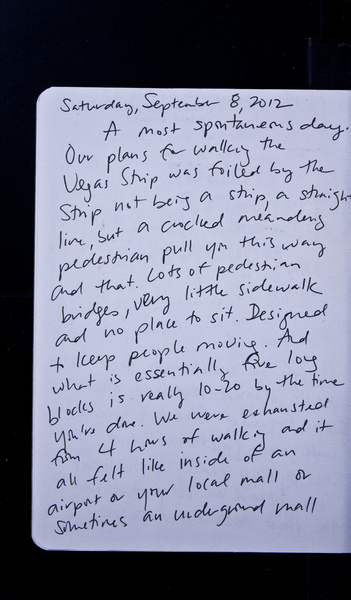 Saturday, September 8, 2012
A most spontaneous day.
Our plans for walking the
Vegas Strip was foiled by the
Strip not being a strip, a straight
line, but a crocked meandering
pedestrian pull yin this way
and that. Lots of pedestrian
bridges, very little sidewalk
and no place to sit. Designed
to keep people moving. And
what is essentially five long
blocks is really 10-20 by the time
you're done. We were exhausted
from 4 hours of walking and it
all felt like inside of an
airport or your local mall or
sometimes an underground mall